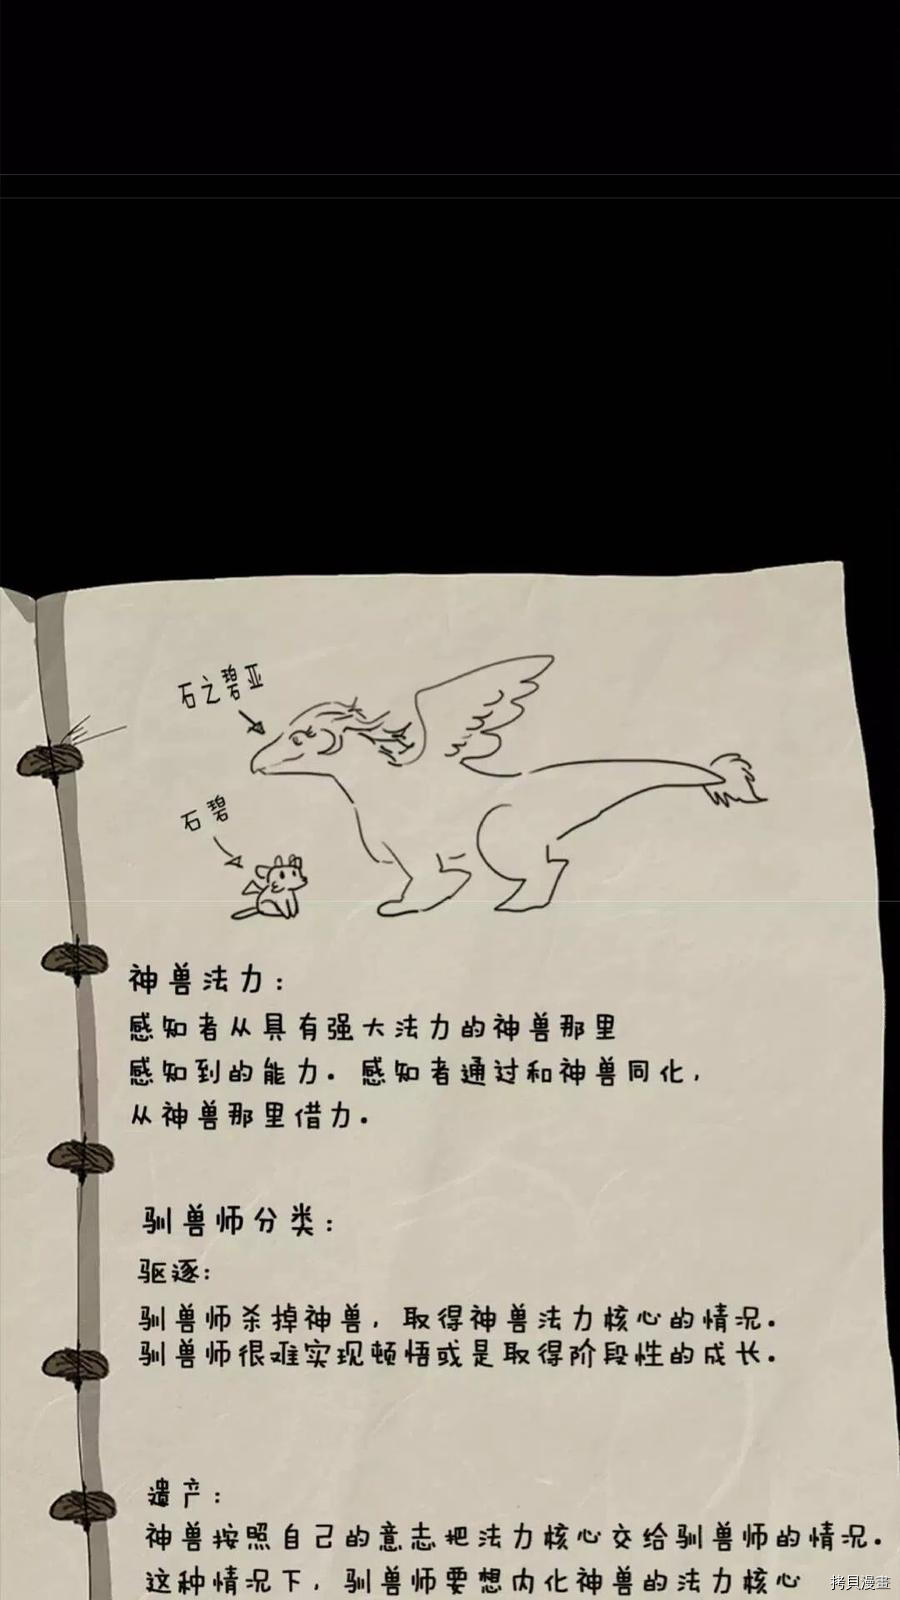 石之碧亚
石碧
神兽法力：
感知者从具有强大法力的神兽那里
感知到的能力。感知者通过和神兽同化，
从神兽那里借力。
驯兽师分类：
驱逐：
驯兽师杀掉神兽，取得神兽法力核心的情况。
驯兽师很难实现顿悟或是取得阶段性的成长。
遗产：
神兽按照自己的意志把法力核心交给驯兽师的情况。
这种情况下，驯兽师要想内化神兽的法力核心
拷貝漫畫